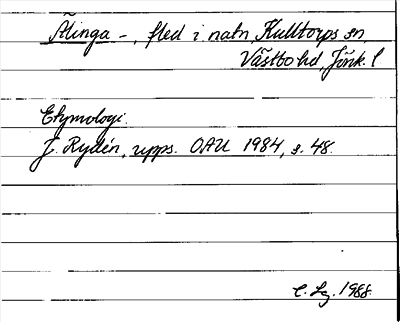 Älinga -, fled i natn Kulltorps sn
Västbo hd, Jönk. l
Etymologi.
J. Rydén, upps. OAU 1984, s. 48.
1988.